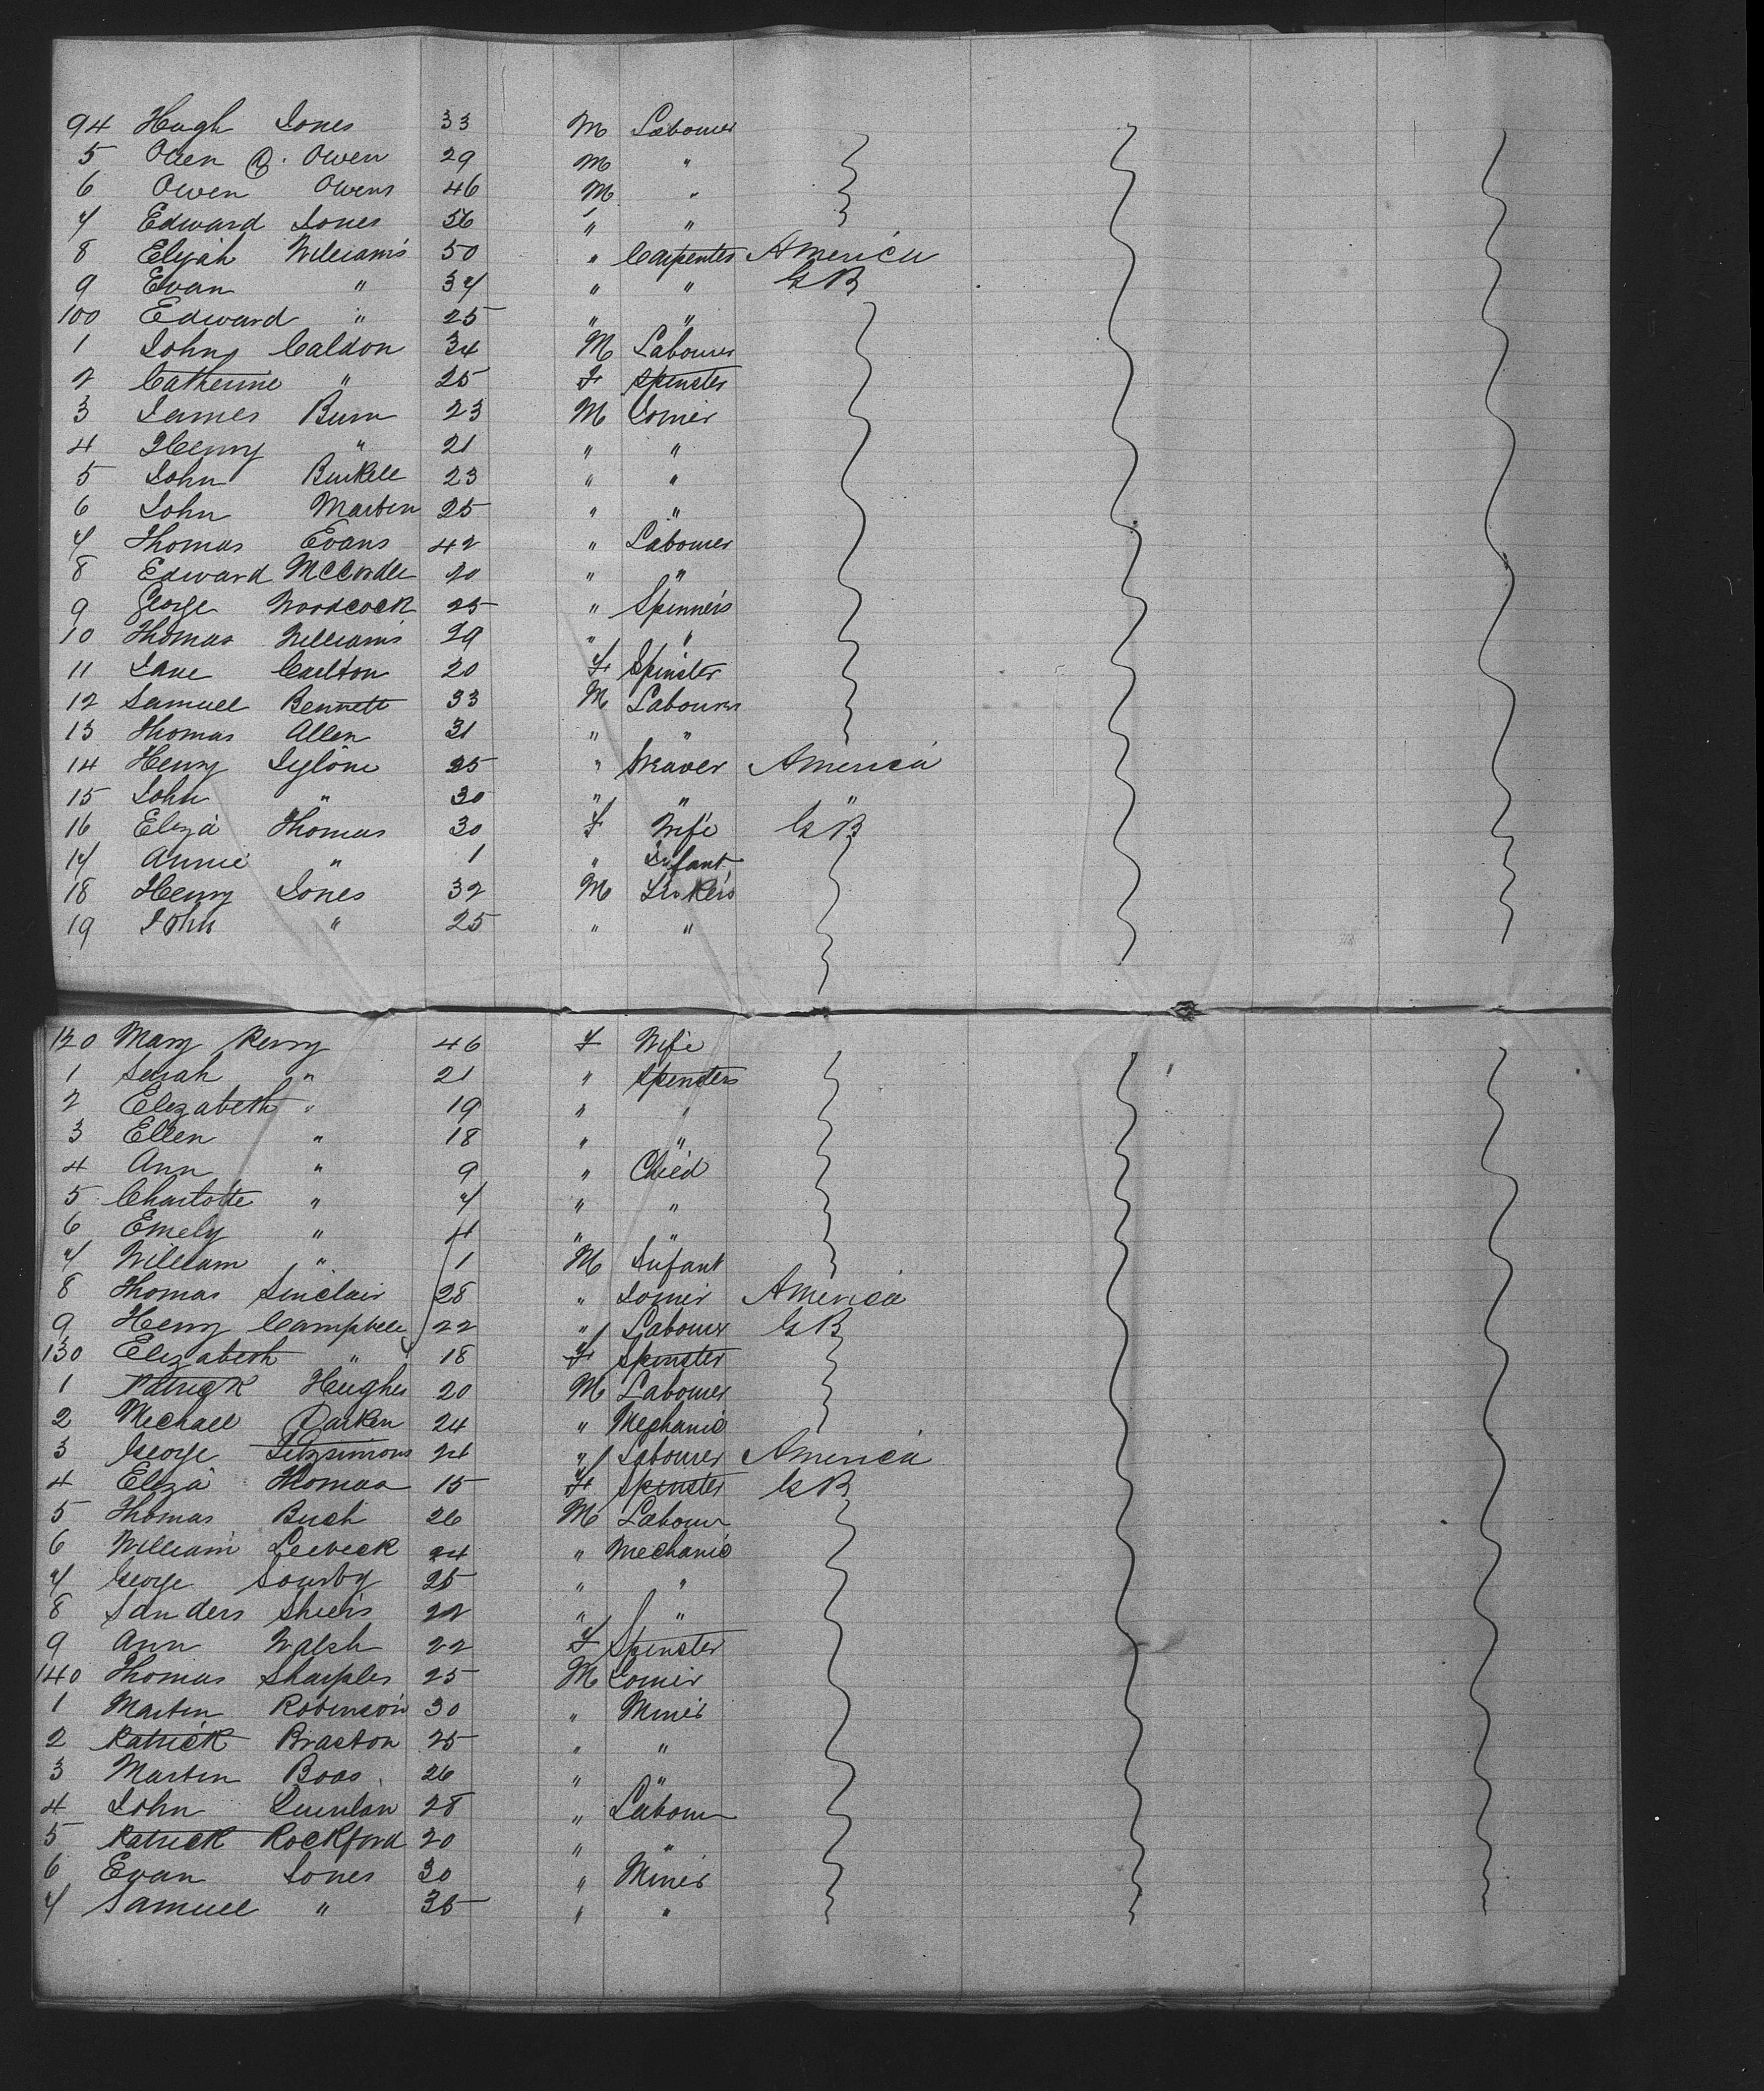 94 Hugh Jones 33 M Labourer
5 Owen O. Owen 29 M "
6 Owen Owens 46 M "
7 Edward Jones 56 " "
8 Elijah Williams 50 " Carpenter America
9 Evan " 37 " " G B
100 Edward " 25 " "
1 John Caldon 34 M Labourer
2 Catherine " 25 F Spinster
3 James Burn 23 M Joiner
4 Henry " 21 " "
5 John 23 " "
6 John Martin 25 " "
7 Thomas Evans 42 " Labourer
8 Edward McCordle 20 " "
9 George Woodcock 25 " Spinners
10 Thomas Williams 29 " "
11 Jane Carlton 20 F Spinster
12 Samuel Bennett 33 M Labourer
13 Thomas Allen 31 " "
14 Henry 25 " Weaver America
15 John " 30 " " "
16 Eliza Thomas 30 F Wife G B
17 Annie " 1 " Infant
18 Henry Jones 32 M
19 John " 25 " "
120 Mary Perry 46 F Wife
1 Sarah " 21 " Spinsters
2 Elizabeth " 19 " "
3 Ellen " 18 " "
4 Ann " 9 " Child
5 Charlotte " 7 " "
6 Emely " 4 " "
7 William " 1 M Infant
8 Thomas Sinclair 28 " Joiner America
9 Henry Campbell 22 " Labourer G B
130 Elizabeth " 18 F Spinster
1 Patrick Hughes 20 M Labourer
2 Michael Darken 24 " Mechanic
3 George Fitzsimons 24 " Labourer America
4 Eliza Thomas 15 F Spinster G B
5 Thomas Buch 26 M Labour
6 William Leebeck 24 " Mechanic
7 George Sourby 25 " "
8 Sanders Shiels 22 " "
9 Ann Walsh 22 F Spinster
140 Thomas Sharples 25 M Joiner
1 Martin Robinson 30 " Miner
2 Patrick Bracton 25 " "
3 Martin Boas 26 " "
4 John Quinlan 28 " Labour
5 Patrick Rockford 20 " "
6 Evan Jones 30 " Miner
7 Samuel " 35 " "